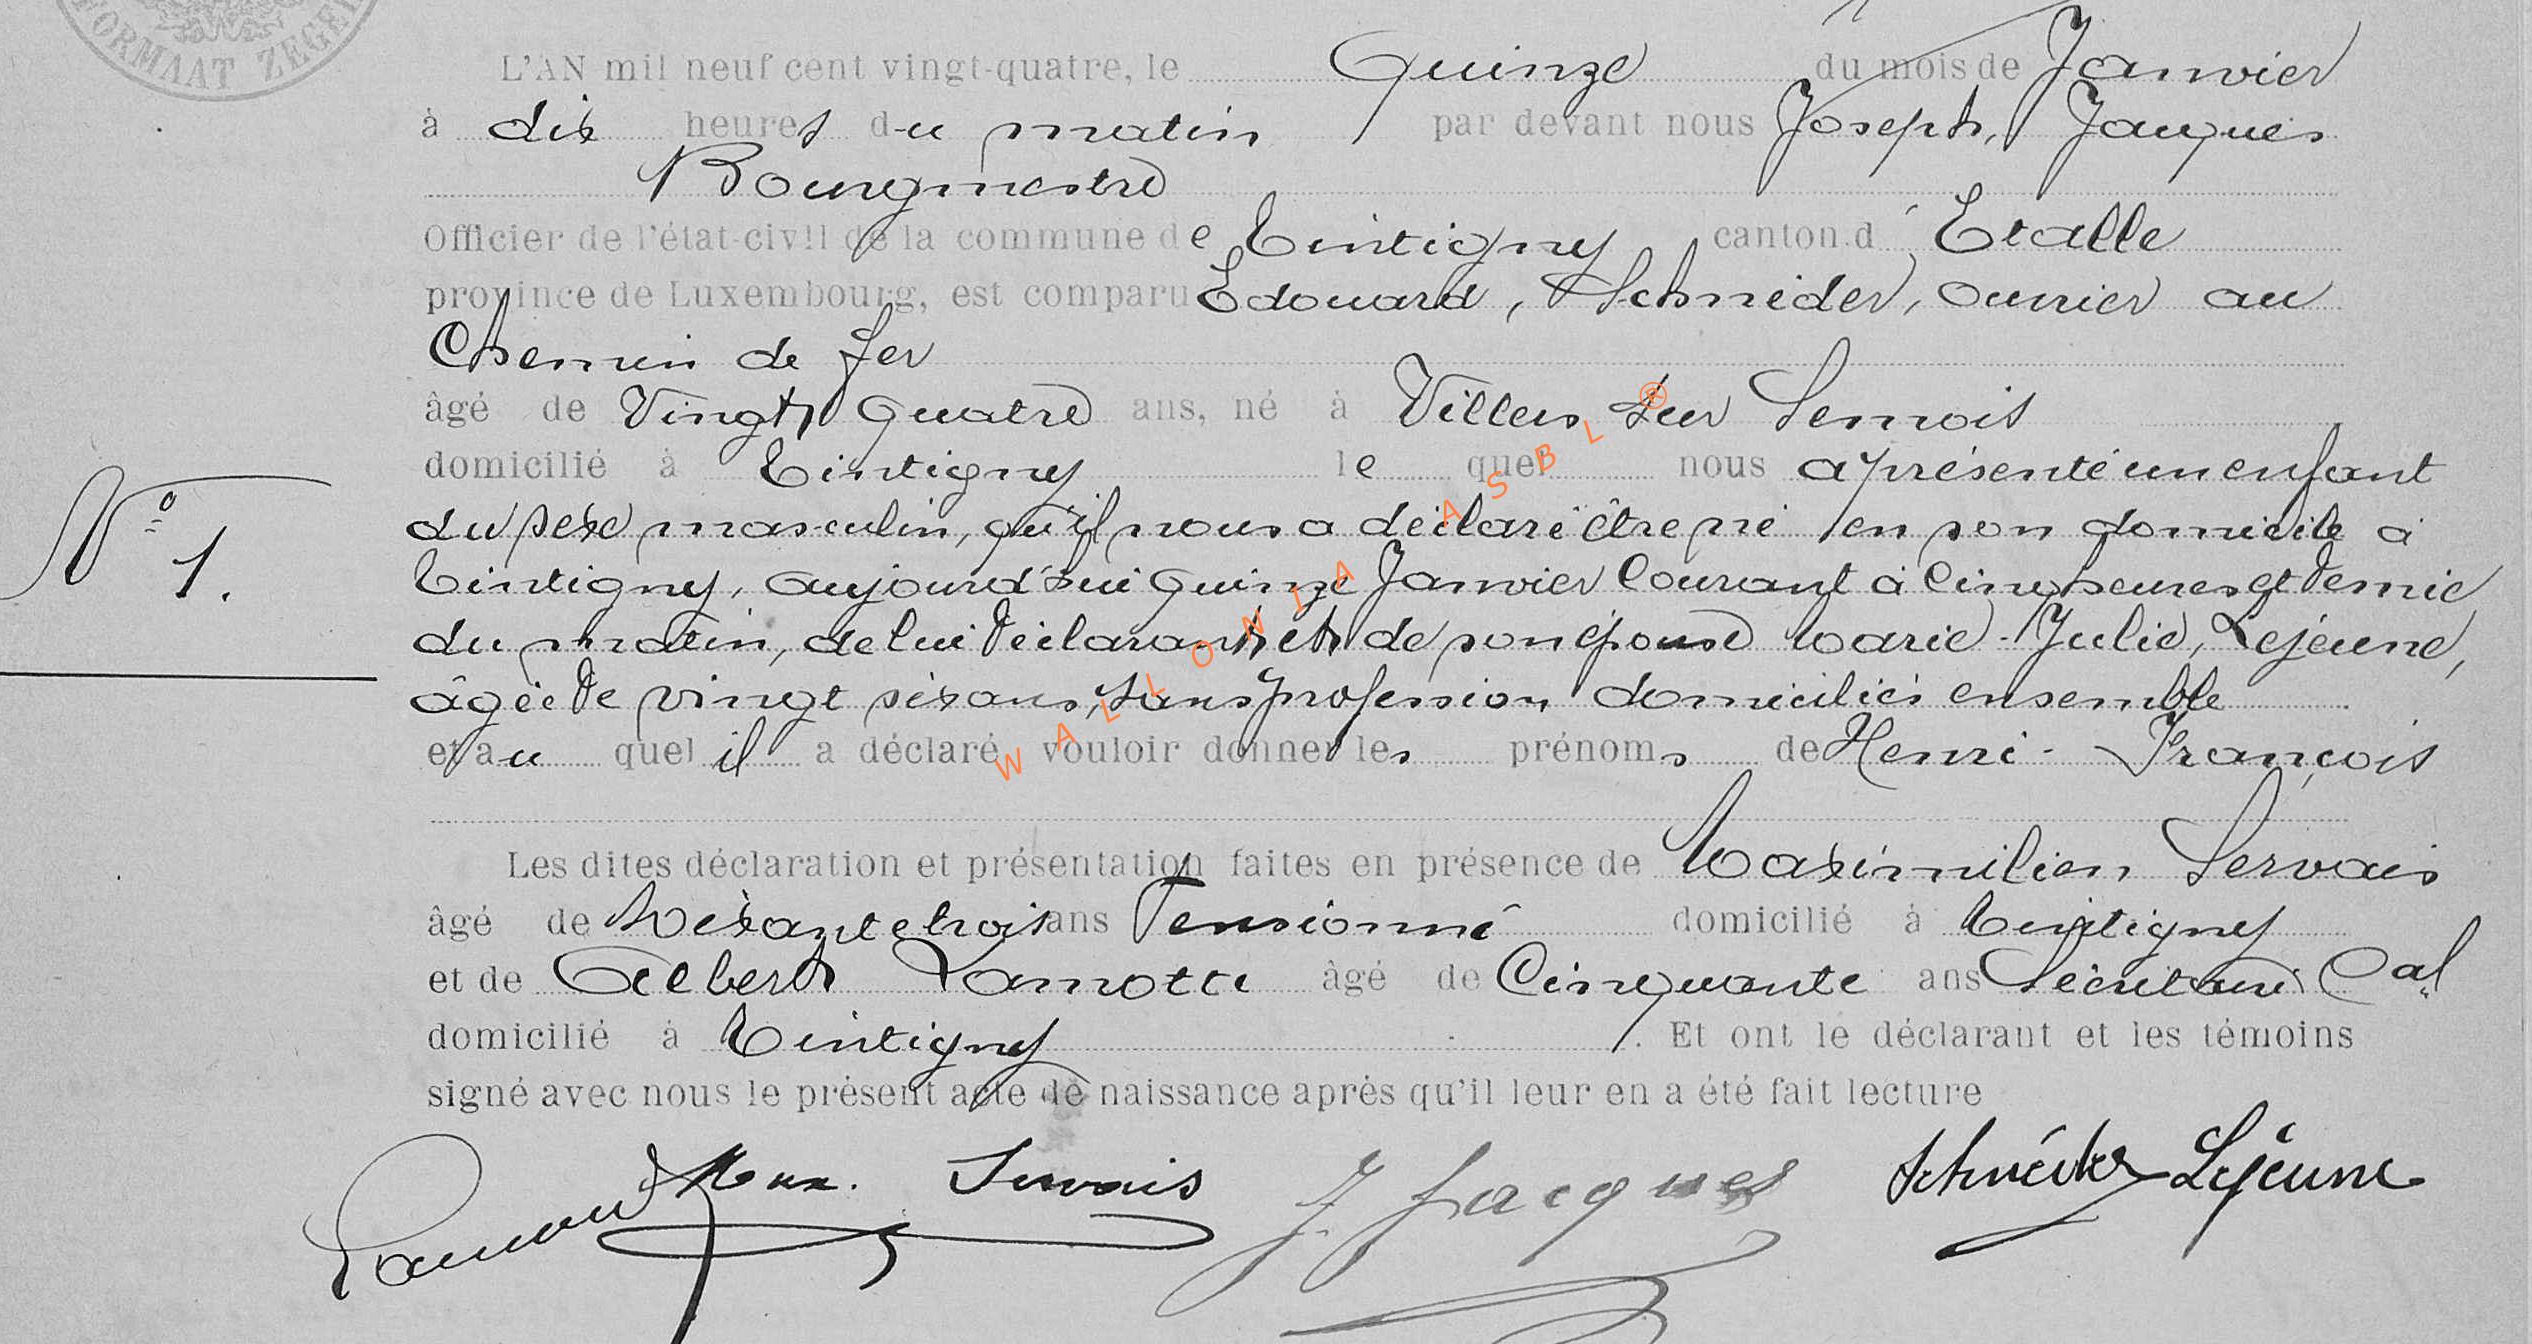 FORMAAT ZEGEL
L'AN mil neuf cent vingt-quatre, le Quinze du mois de Janvier
à dix heures du matin par devant nous Joseph, Jacques
Bourgmestre
Officier de l'état-civil de la commune de Tintigny canton d'Etalle
province de Luxembourg, est comparu Edouard, Schneider, ouvrier au
Chemin de fer
âgé de Vingt quatre ans, né à Villers sur Semois
domicilié à Tintigny le quel nous a présenté un enfant
du sexe masculin, qu'il nous a déclaré être né en son domicile à
N° 1.
Tintigny, aujourd'hui Quinze Janvier Courant à Cinq heures et demie
du matin, de lui déclarant et de son épouse Marie-Julie, Lejeune,
âgée de vingt six ans, sans profession domiciliés ensemble
et au quel il a déclaré vouloir donner les prénoms de Henri-François
Les dites déclaration et présentation faites en présence de Maximilien Servais
âgé de soixante trois ans Pensionné domicilié à Tintigny
et de Albert Lamotte âgé de Cinquante ans Secrétaire Cal
domicilié à Tintigny. Et ont le déclarant et les témoins
signé avec nous le présent acte de naissance après qu'il leur en a été fait lecture
Max. Servais J. Jacques Schneider Lejeune
WALLONIA ASBL ®